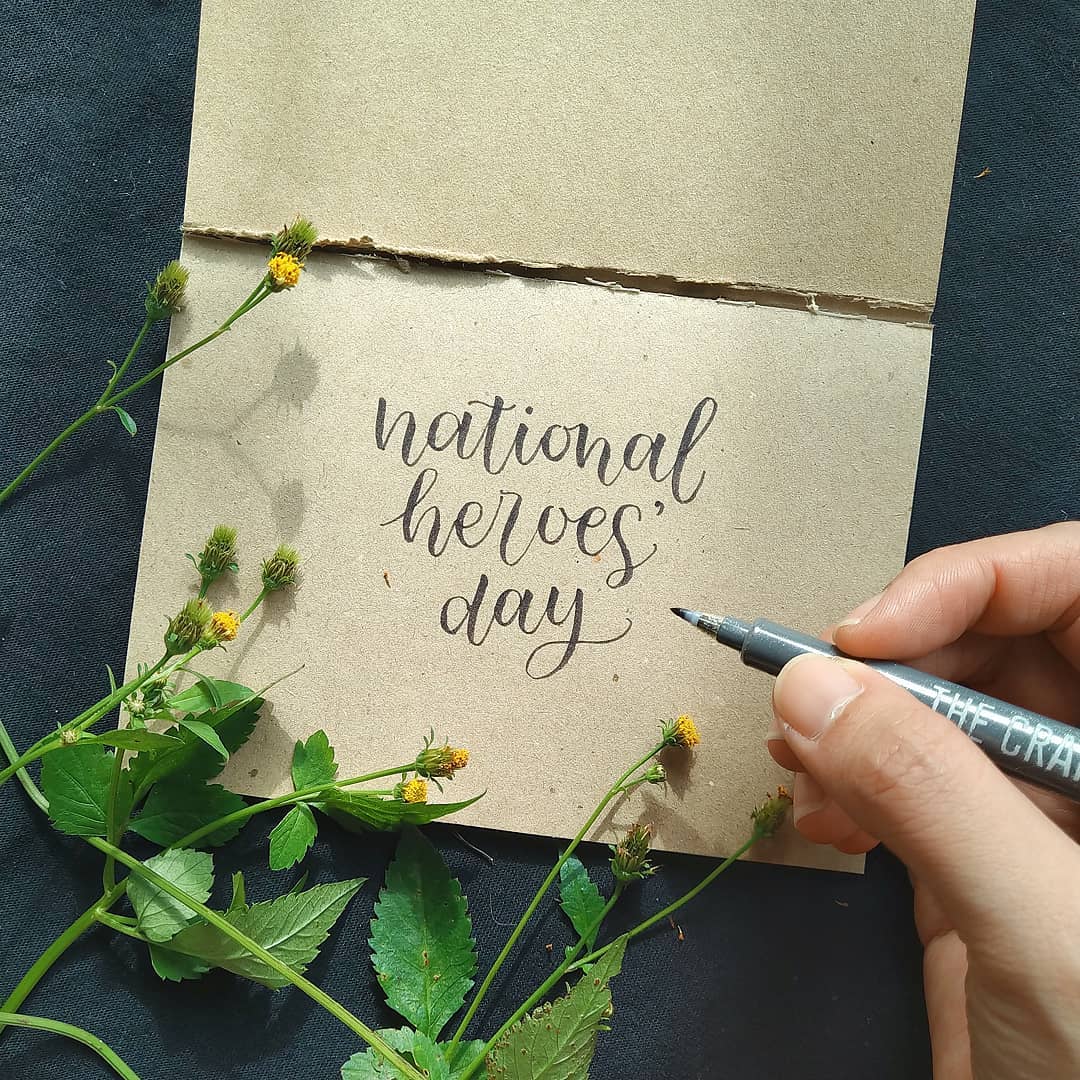 national
heroes'
day
THE CRA